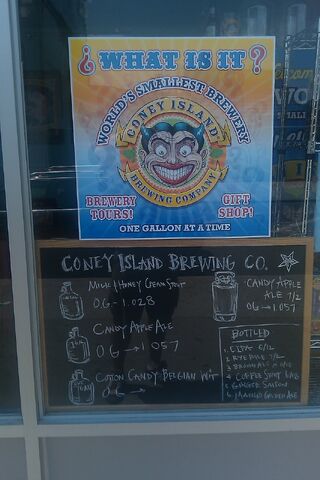 ¿ WHAT IS IT ?
WORLD'S SMALLEST BREWERY
CONEY ISLAND
BREWING COMPANY
BREWERY TOURS!
GIFT SHOP!
ONE GALLON AT A TIME
CONEY ISLAND BREWING CO.
MILK & HONEY CREAM STOUT
O.G. - 1.028
CANDY APPLE ALE
OG → 1.057
COTTON CANDY BELGIAN WIT
OG →
CANDY APPLE
ALE 7/2
OG → 1.057
BOTTLED
1. CIPA 6/12
2. RYE PALE 7/2
3. BROWN ALE
4. COFFEE STOUT
5. GINGER SAISON
6. MANGO GOLDEN ALE